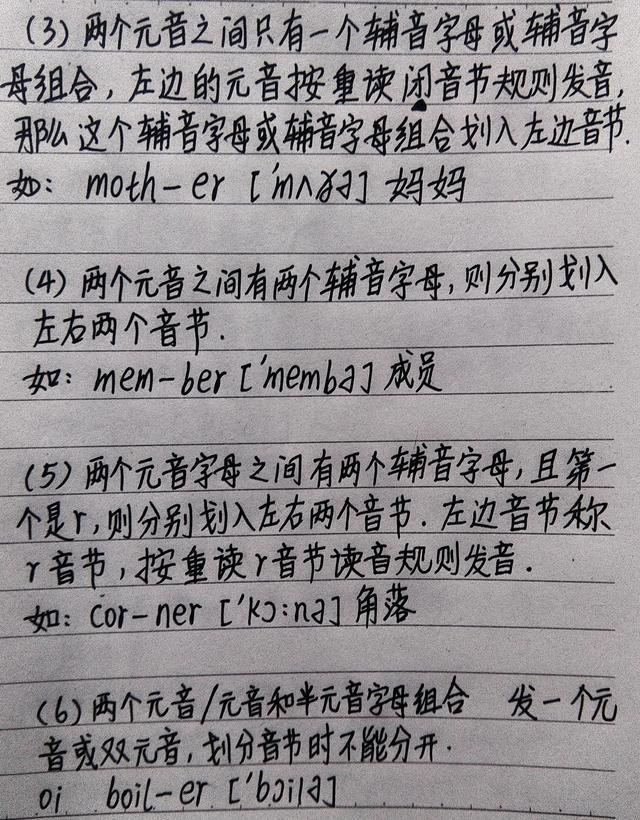 (3) 两个元音之间只有一个辅音字母或辅音字
母组合, 左边的元音按重读闭音节规则发音,
那么这个辅音字母或辅音字母组合划入左边音节.
如: moth-er ['mʌðə] 妈妈
(4) 两个元音之间有两个辅音字母, 则分别划入
左右两个音节.
如: mem-ber ['membə] 成员
(5) 两个元音字母之间有两个辅音字母, 且第一
个是r, 则分别划入左右两个音节. 左边音节称
r音节, 按重读r音节读音规则发音.
如: cor-ner ['kɔ:nə] 角落
(6) 两个元音/元音和半元音字母组合 发一个元
音或双元音, 划分音节时不能分开.
oi boil-er ['bɔilə]